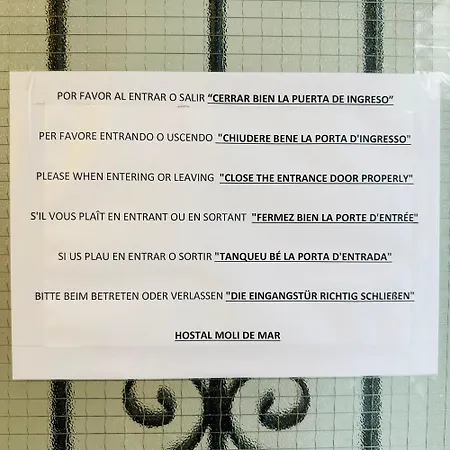 POR FAVOR AL ENTRAR O SALIR “CERRAR BIEN LA PUERTA DE INGRESO”
PER FAVORE ENTRANDO O USCENDO "CHIUDERE BENE LA PORTA D'INGRESSO"
PLEASE WHEN ENTERING OR LEAVING "CLOSE THE ENTRANCE DOOR PROPERLY"
S'IL VOUS PLAÎT EN ENTRANT OU EN SORTANT "FERMEZ BIEN LA PORTE D'ENTRÉE"
SI US PLAU EN ENTRAR O SORTIR "TANQUEU BÉ LA PORTA D'ENTRADA"
BITTE BEIM BETRETEN ODER VERLASSEN "DIE EINGANGSTÜR RICHTIG SCHLIEßEN"
HOSTAL MOLI DE MAR